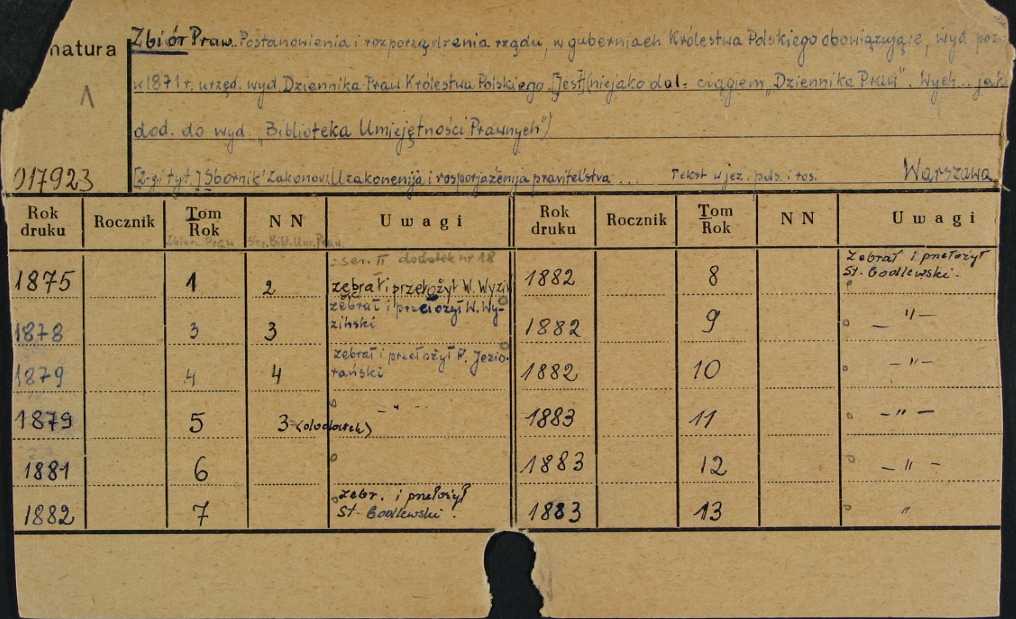 natura
Zbiór Praw. Postanowienia i rozporządzenia rządu, w guberniach Królestwa Polskiego obowiązujące, wyd po
w 1871 r. urzęd. wyd Dziennika Praw Królestwa Polskiego. [Jest](niejako dal- ciągiem „Dziennika Praw". Wych... jak
dod. do wyd. „Biblioteka Umiejętności Prawnych")
017923 [2-gi tyt.] Sbornik Zakonov. Uzakonenija i rosporjaženija pravitel'stva ... Tekst w jęz. pols. i ros. Warszawa
Rok druku Rocznik Tom Rok N N Uwagi Rok druku Rocznik Tom Rok N N Uwagi
Zbiór Praw Ser. Bibl. Um. Praw.
1875 1 2 ser. II dodatek nr 18 zebrał i przełożył W. Wyzi 1882 8 Zebrał i przełożył St. Godlewski.
1878 3 3 zebrał i przełożył W. Wyziński 1882 9 — " —
1879 4 4 zebrał i przełożył F. Jeziorański 1882 10 — " —
1879 5 3 (dodatek) — " — 1883 11 — " —
1881 6 1883 12 — " —
1882 7 zebr. i przełożył St. Godlewski. 1883 13 "